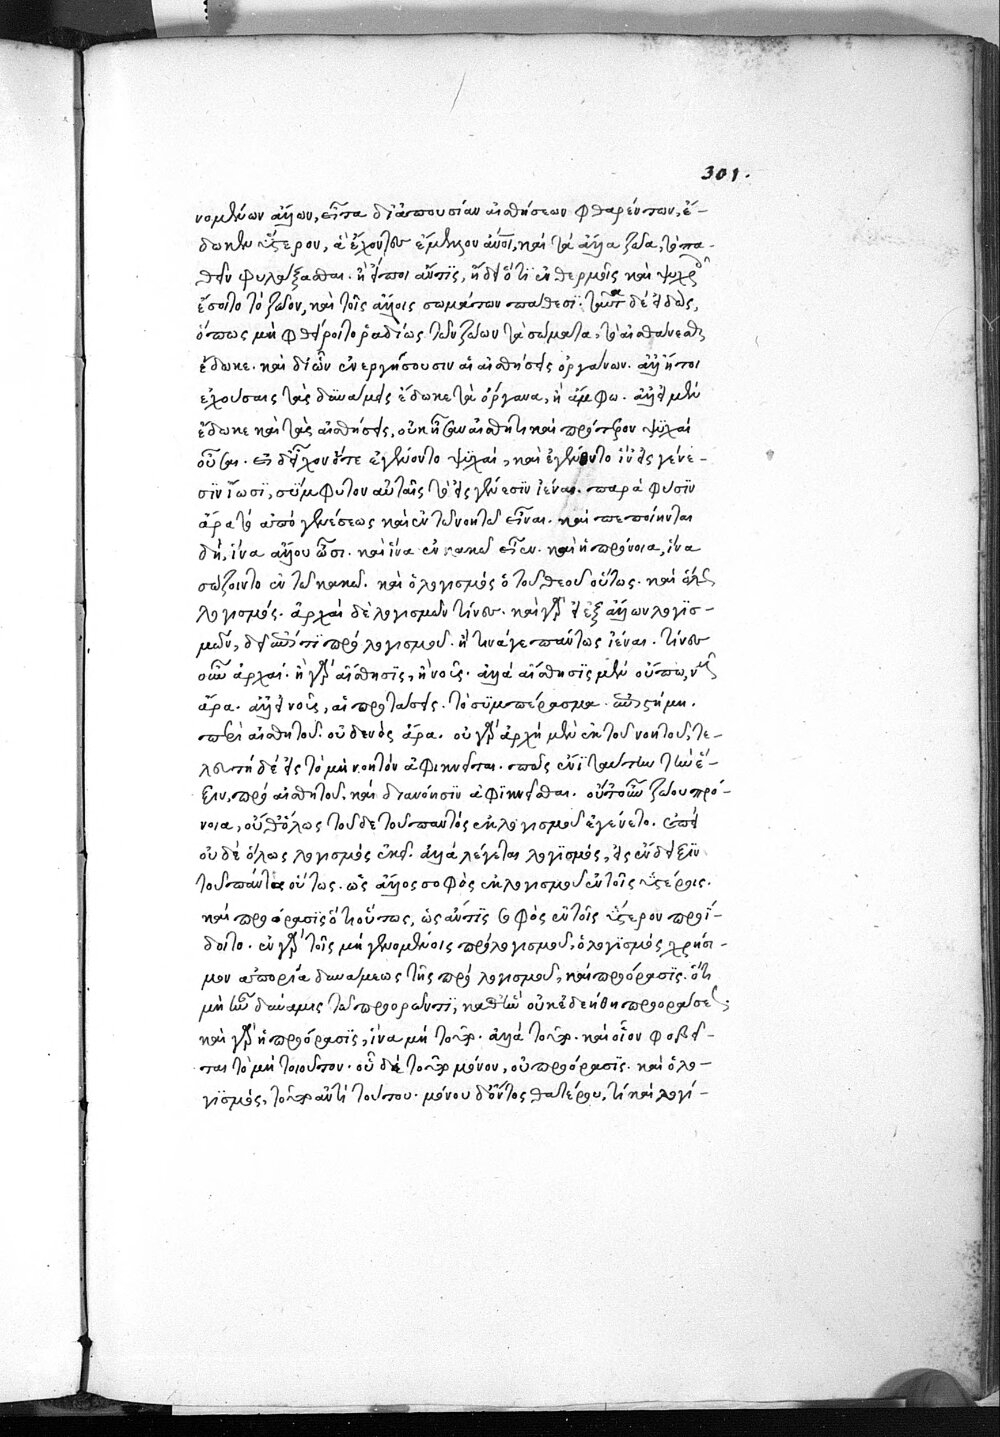 301.
νομένων ἄλλων, εἶτα διὰ ἀπουσίαν αἰσθήσεων φθαρέντων, ἔ-
δωκεν ὕστερον, ἃ ἔχοντες ἔμελλον ἄνθρωποι, καὶ τὰ ἄλλα ζῶα, τὸ πα-
θεῖν φυλάξασθαι. ἢ εἴποι ἄν τις, ᾔδει ὅτι ἐν θερμοῖς καὶ ψυχροῖς
ἔσοιτο τὸ ζῶον, καὶ τοῖς ἄλλοις σωμάτων πάθεσι· ταῦτα δὲ εἰδὼς,
ὅπως μὴ φθείροιτο ῥαδίως τῶν ζώων τὰ σώματα, τὸ αἰσθάνεσθαι
ἔδωκε. καὶ δι' ὧν ἐνεργήσουσιν αἱ αἰσθήσεις ὀργάνων. ἀλλ' ἤτοι
ἐχούσαις τὰς δυνάμεις ἔδωκε τὰ ὄργανα, ἢ ἄμφω. ἀλλ' εἰ μὲν
ἔδωκε καὶ τὰς αἰσθήσεις, οὐκ ἦσαν αἰσθητικαὶ πρότερον ψυχαὶ
οὖσαι. εἰ δ' εἶχον ὅτε ἐγένοντο ψυχαὶ, καὶ ἐγένοντο ἵν' εἰς γένε-
σιν ἴωσι, σύμφυτον αὐταῖς τὸ εἰς γένεσιν ἰέναι. παρὰ φύσιν
ἄρα τὸ ἀπὸ γενέσεως καὶ ἐν τῶ νοητῶ εἶναι. καὶ πεποίηνται
δὴ, ἵνα ἄλλου ὦσι. καὶ ἵνα ἐν κακῶ εἶεν. καὶ ἡ πρόνοια, ἵνα
σώζοιντο ἐν τῶ κακῶ. καὶ ὁ λογισμὸς ὁ τοῦ θεοῦ οὕτως. καὶ ὅλως
λογισμός. ἀρχαὶ δὲ λογισμῶν τίνες. καὶ γὰρ εἰ ἐξ ἄλλων λογισ-
μῶν, δεῖ ἐπί τι πρὸ λογισμοῦ ἤ τινά γε πάντως ἰέναι. τίνες
οὖν ἀρχαί. ἢ γὰρ αἴσθησις, ἢ νοῦς. ἀλλὰ αἴσθησις μὲν οὔπω, νοῦς
ἄρα. ἀλλ' εἰ νοῦς, αἱ προτάσεις. τὸ συμπέρασμα ἐπιστήμη.
περὶ αἰσθητοῦ οὐδενὸς ἄρα. οὗ γὰρ ἀρχὴ μὲν ἐκ τοῦ νοητοῦ, τε-
λευτὴ δὲ εἰς τὸ μὴ νοητὸν ἀφικνεῖται. πῶς ἔνι ταύτην τὴν ἕ-
ξιν, πρὸς αἰσθητοῦ, καὶ διανόησιν ἀφικνεῖσθαι. οὔτ' οὖν ζώου πρό-
νοια, οὔθ' ὅλως τοῦδε τοῦ παντὸς ἐκ λογισμοῦ ἐγένετο. ἐπεὶ
οὐδὲ ὅλως λογισμὸς ἐκεῖ. ἀλλὰ λέγεται λογισμός, εἰς ἔνδειξιν
τοῦ πάντα οὕτως. ὡς ἄλλος σοφὸς ἐκ λογισμοῦ ἐν τοῖς ὕστερον.
καὶ προόρασις ὅτι οὕτως, ὡς ἄν τις σοφὸς ἐν τοῖς ὕστερον προΐ-
δοιτο. ἐν γὰρ τοῖς μὴ γενομένοις πρὸ λογισμοῦ, ὁ λογισμὸς χρήσι-
μον ἀπορία δυνάμεως τῆς πρὸ λογισμοῦ, καὶ προόρασις. ὅτι
μὴ ἦν δύναμις τῶ προορῶντι, καθ' ἣν οὐκ ἐδεήθη προοράσεως
καὶ γὰρ ἡ προόρασις, ἵνα μὴ τοῦτο. ἀλλὰ τοῦτο. καὶ οἷον φοβεῖ-
ται τὸ μὴ τοιοῦτον. οὗ δὲ τοῦτο μόνον, οὐ προόρασις. καὶ ὁ λο-
γισμὸς, τοῦτο ἀντὶ τούτου. μόνου δ' ὄντος θατέρου, τί καὶ λογί-